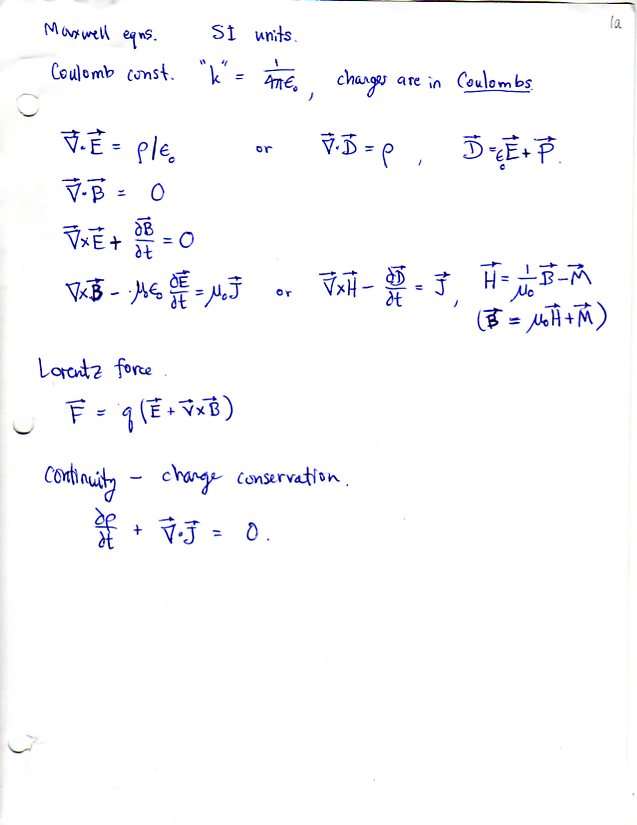 1a
Maxwell eqns. SI units.
Coulomb const. "k" = 1/4πϵ₀ , charges are in Coulombs
∇⃗·E⃗ = ρ/ϵ₀ or ∇⃗·D⃗ = ρ , D⃗ = ϵ₀E⃗ + P⃗.
∇⃗·B⃗ = 0
∇⃗×E⃗ + ∂B⃗/∂t = 0
∇×B⃗ - μ₀ϵ₀ ∂E⃗/∂t = μ₀J⃗ or ∇⃗×H⃗ - ∂D⃗/∂t = J⃗ , H⃗ = 1/μ₀ B⃗ - M⃗
(B⃗ = μ₀H⃗ + M⃗)
Lorentz force.
F⃗ = q (E⃗ + v⃗×B⃗)
Continuity - charge conservation.
∂ρ/∂t + ∇⃗·J⃗ = 0.